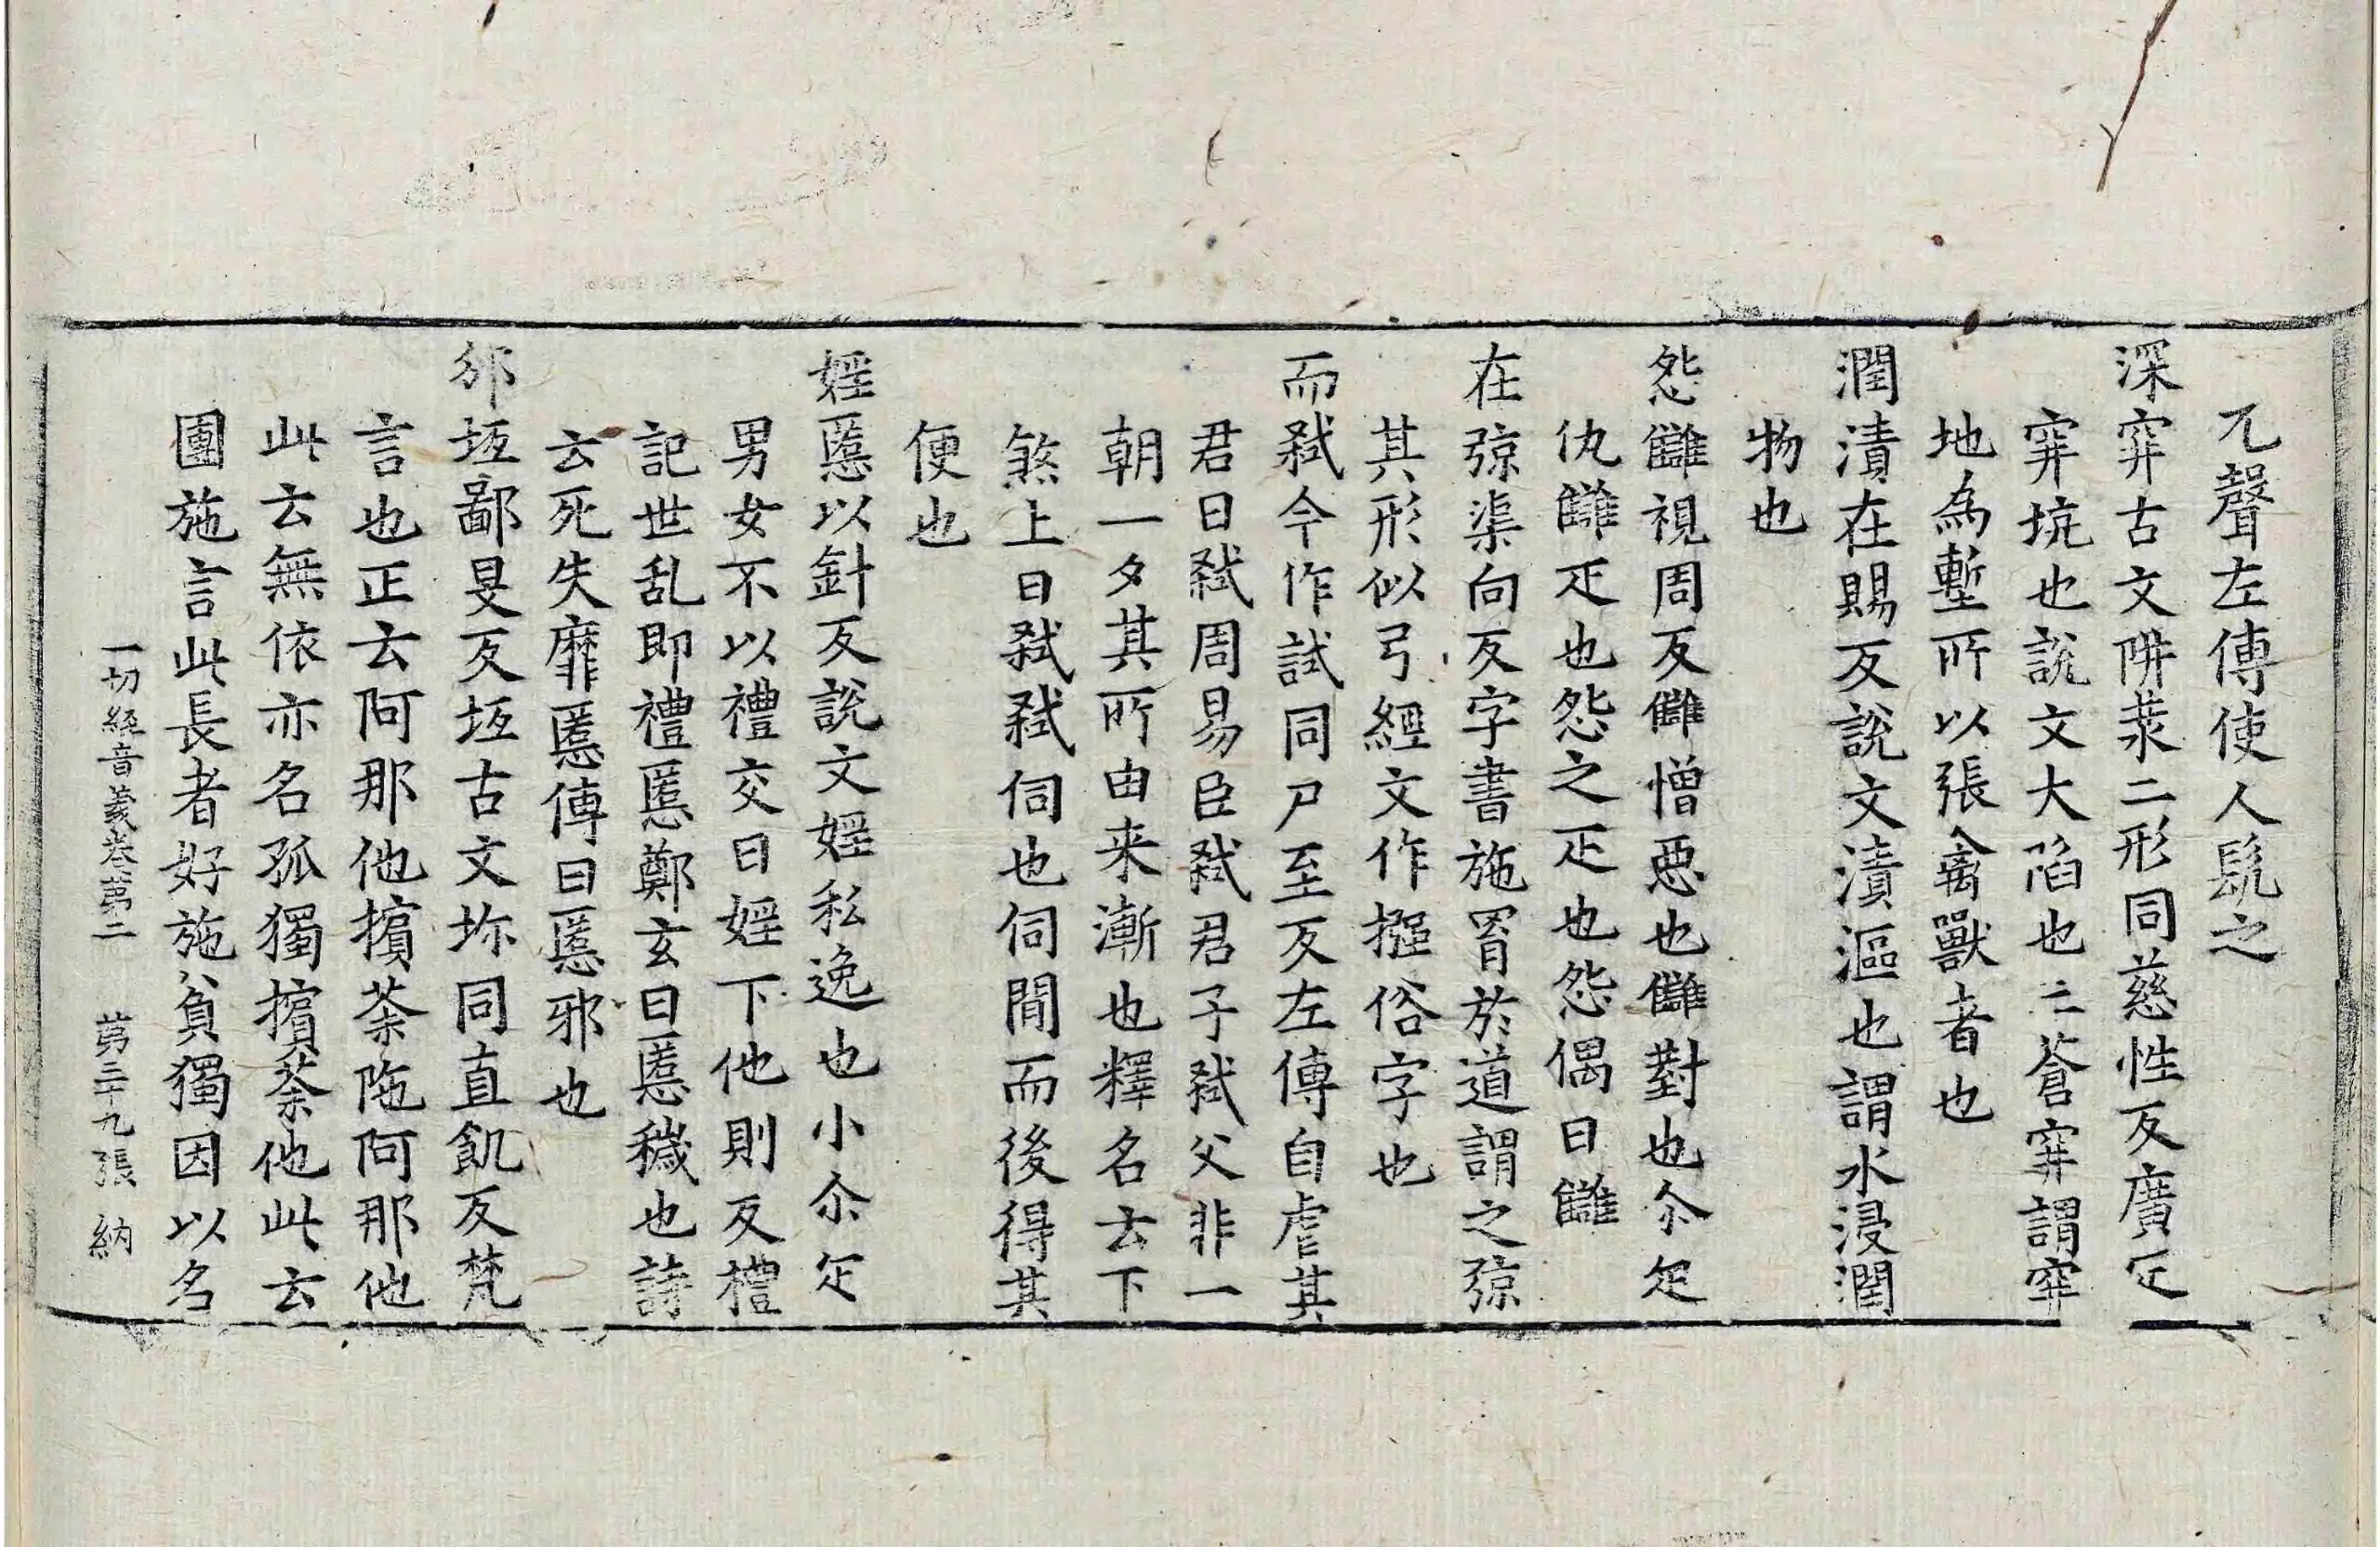 兀聲左傳使人髡之
深穽古文阱𦮼二形同慈性反廣疋
穽坑也說文大陷也三蒼穽謂穿
地為塹所以張禽獸者也
潤漬在賜反說文漬漚也謂水浸潤
物也
怨讎視周反讎憎惡也讎對也尒疋
仇讎疋也怨之疋也怨偶曰讎
在弶渠向反字書施罥於道謂之弶
其形似弓經文作摾俗字也
而弒今作試同尸至反左傳自虐其
君曰弒周易臣弒君子弒父非一
朝一夕其所由来漸也釋名云下
煞上曰弒弒伺也伺間而後得其
便也
婬慝以針反說文婬私逸也小尒疋
男女不以禮交曰婬下他則反禮
記世乱即禮慝鄭玄曰慝穢也詩
云死失靡慝傳曰慝邪也
邠坻鄙旻反坻古文坁同直飢反梵
言也正云阿那他擯荼陁阿那他
此云無依亦名孤獨擯荼他此云
團施言此長者好施貧獨因以名
一切經音義卷第二　第三十九張　納